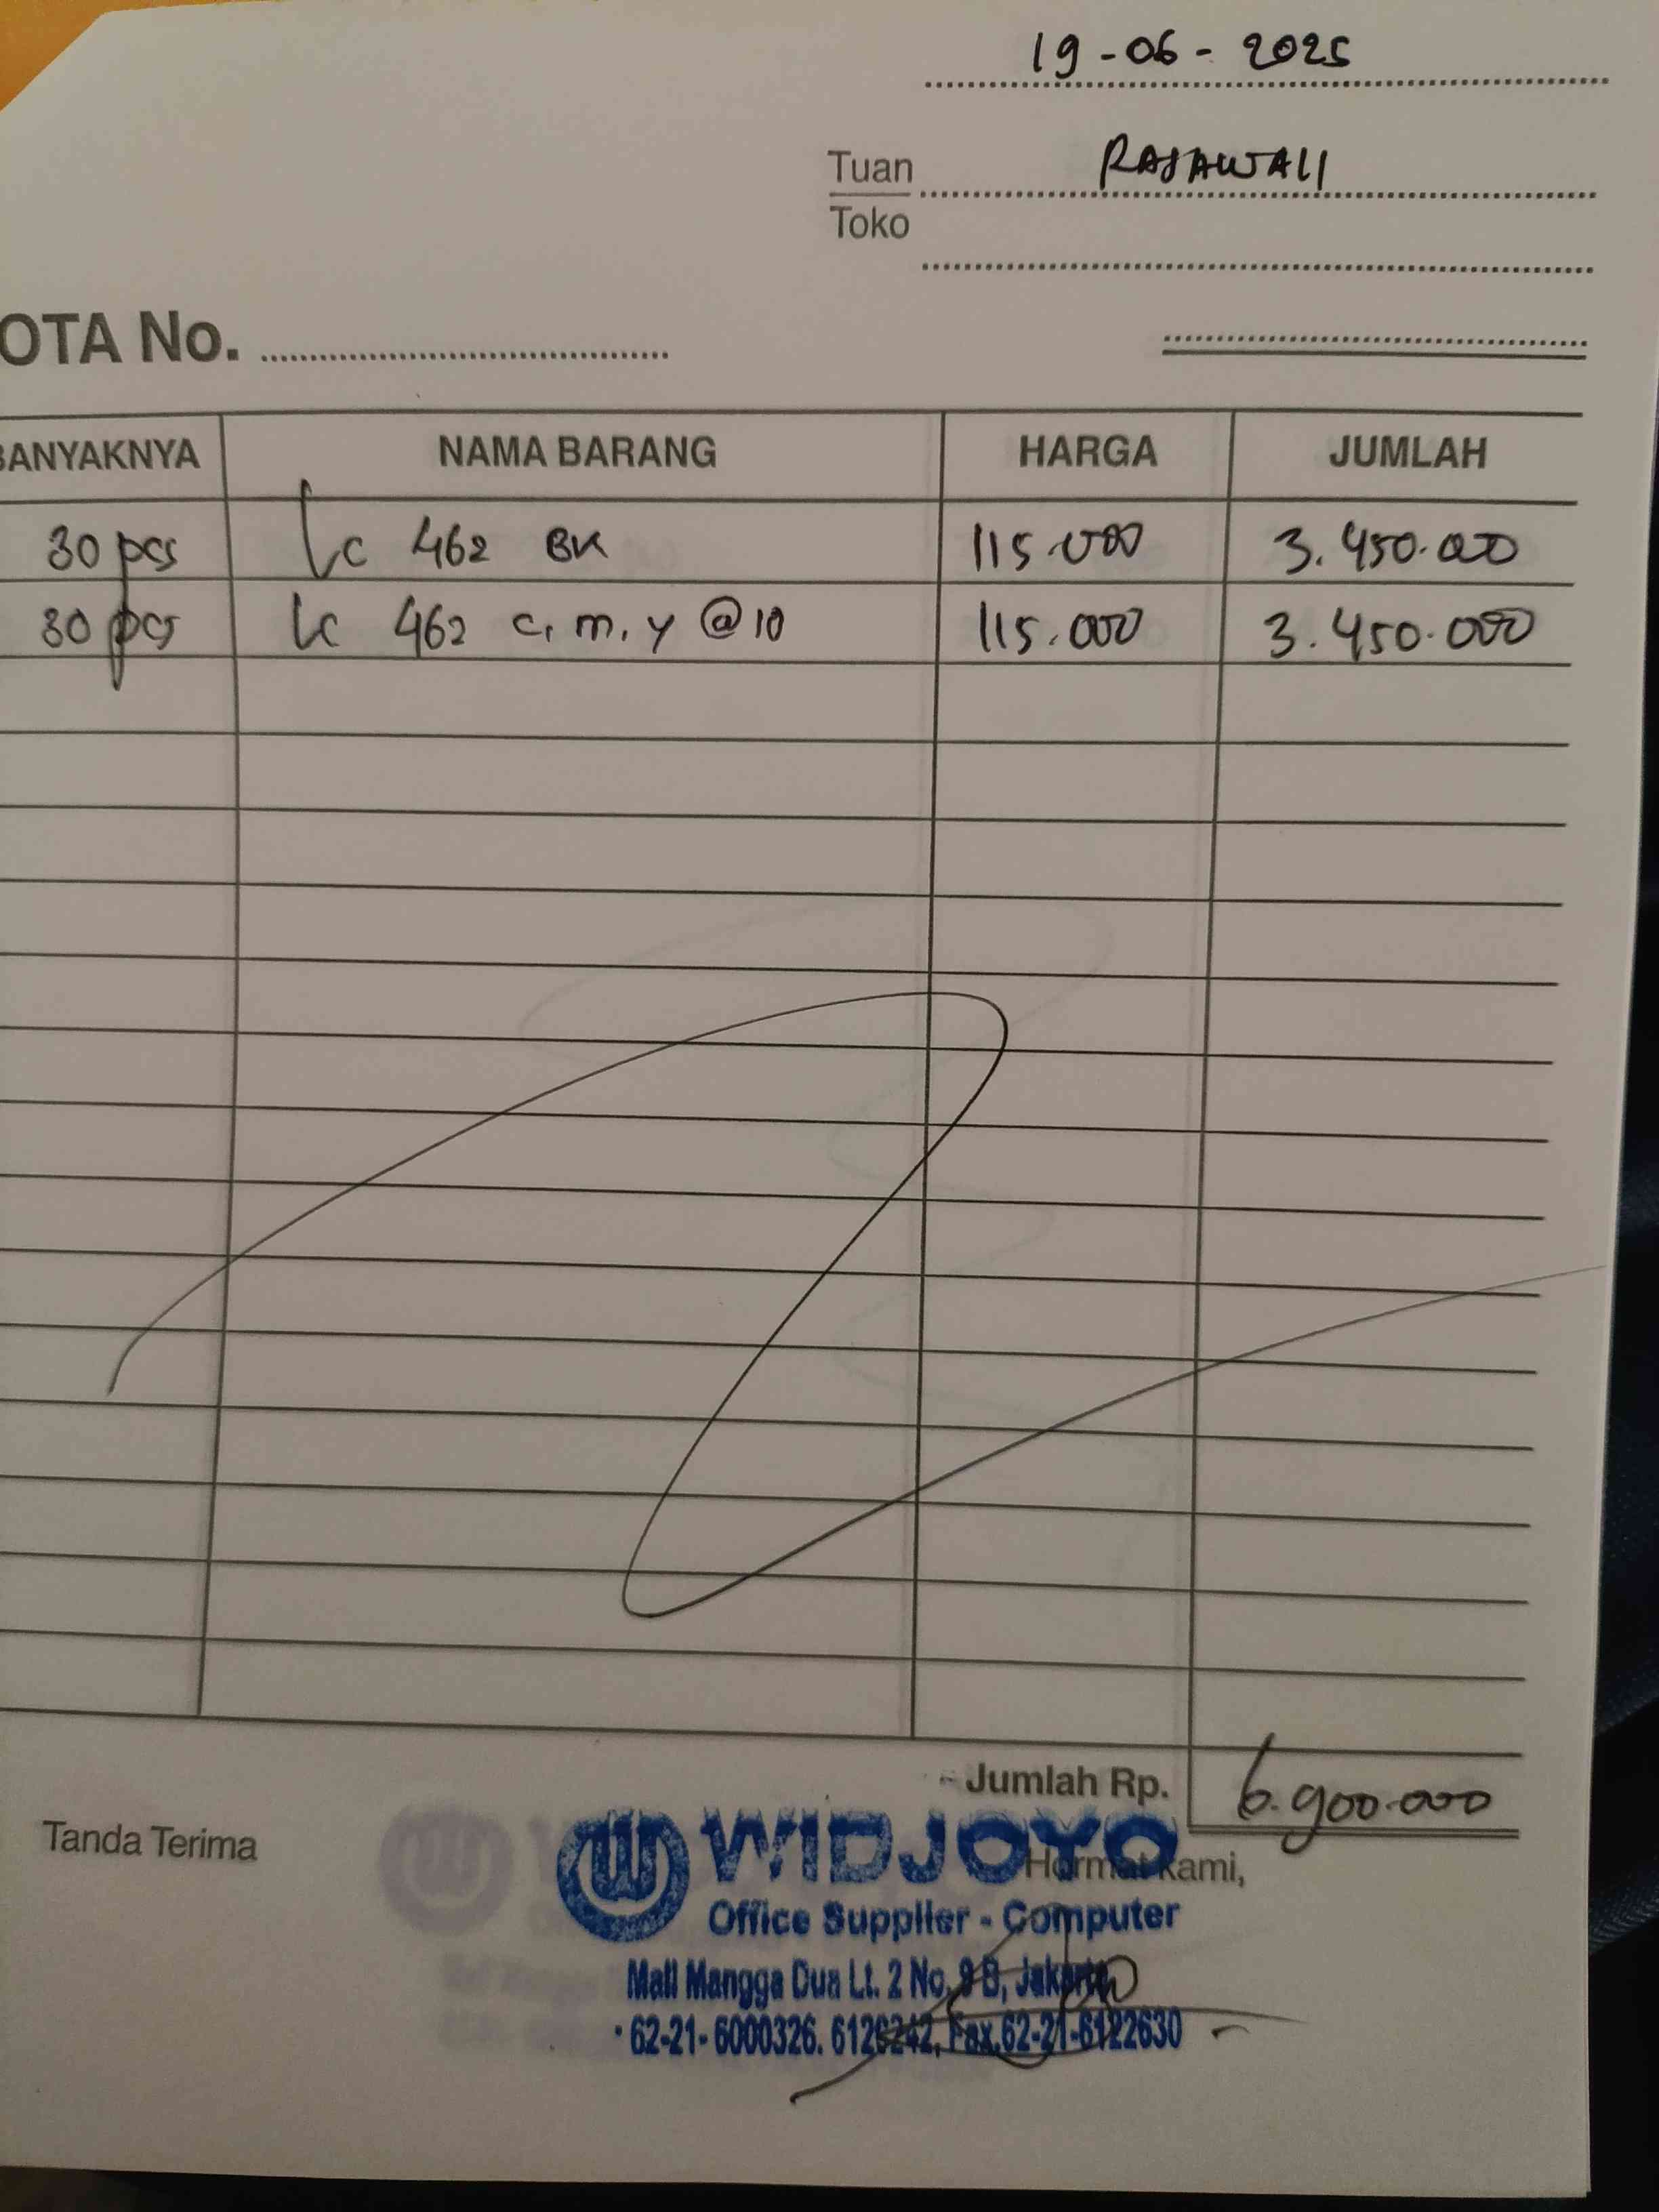 19-06-2025
Tuan RAJAWALI
Toko
OTA No.
BANYAKNYA NAMA BARANG HARGA JUMLAH
30 pcs Lc 462 BK 115.000 3.450.000
30 pcs Lc 462 c, m, y @10 115.000 3.450.000
Jumlah Rp. 6.900.000
Tanda Terima
Hormat Kami,
WIDJOYO
Office Supplier - Computer
Mall Mangga Dua Lt. 2 No. 9 B, Jakarta
62-21-6000326. 6126242, Fax.62-21-6122630